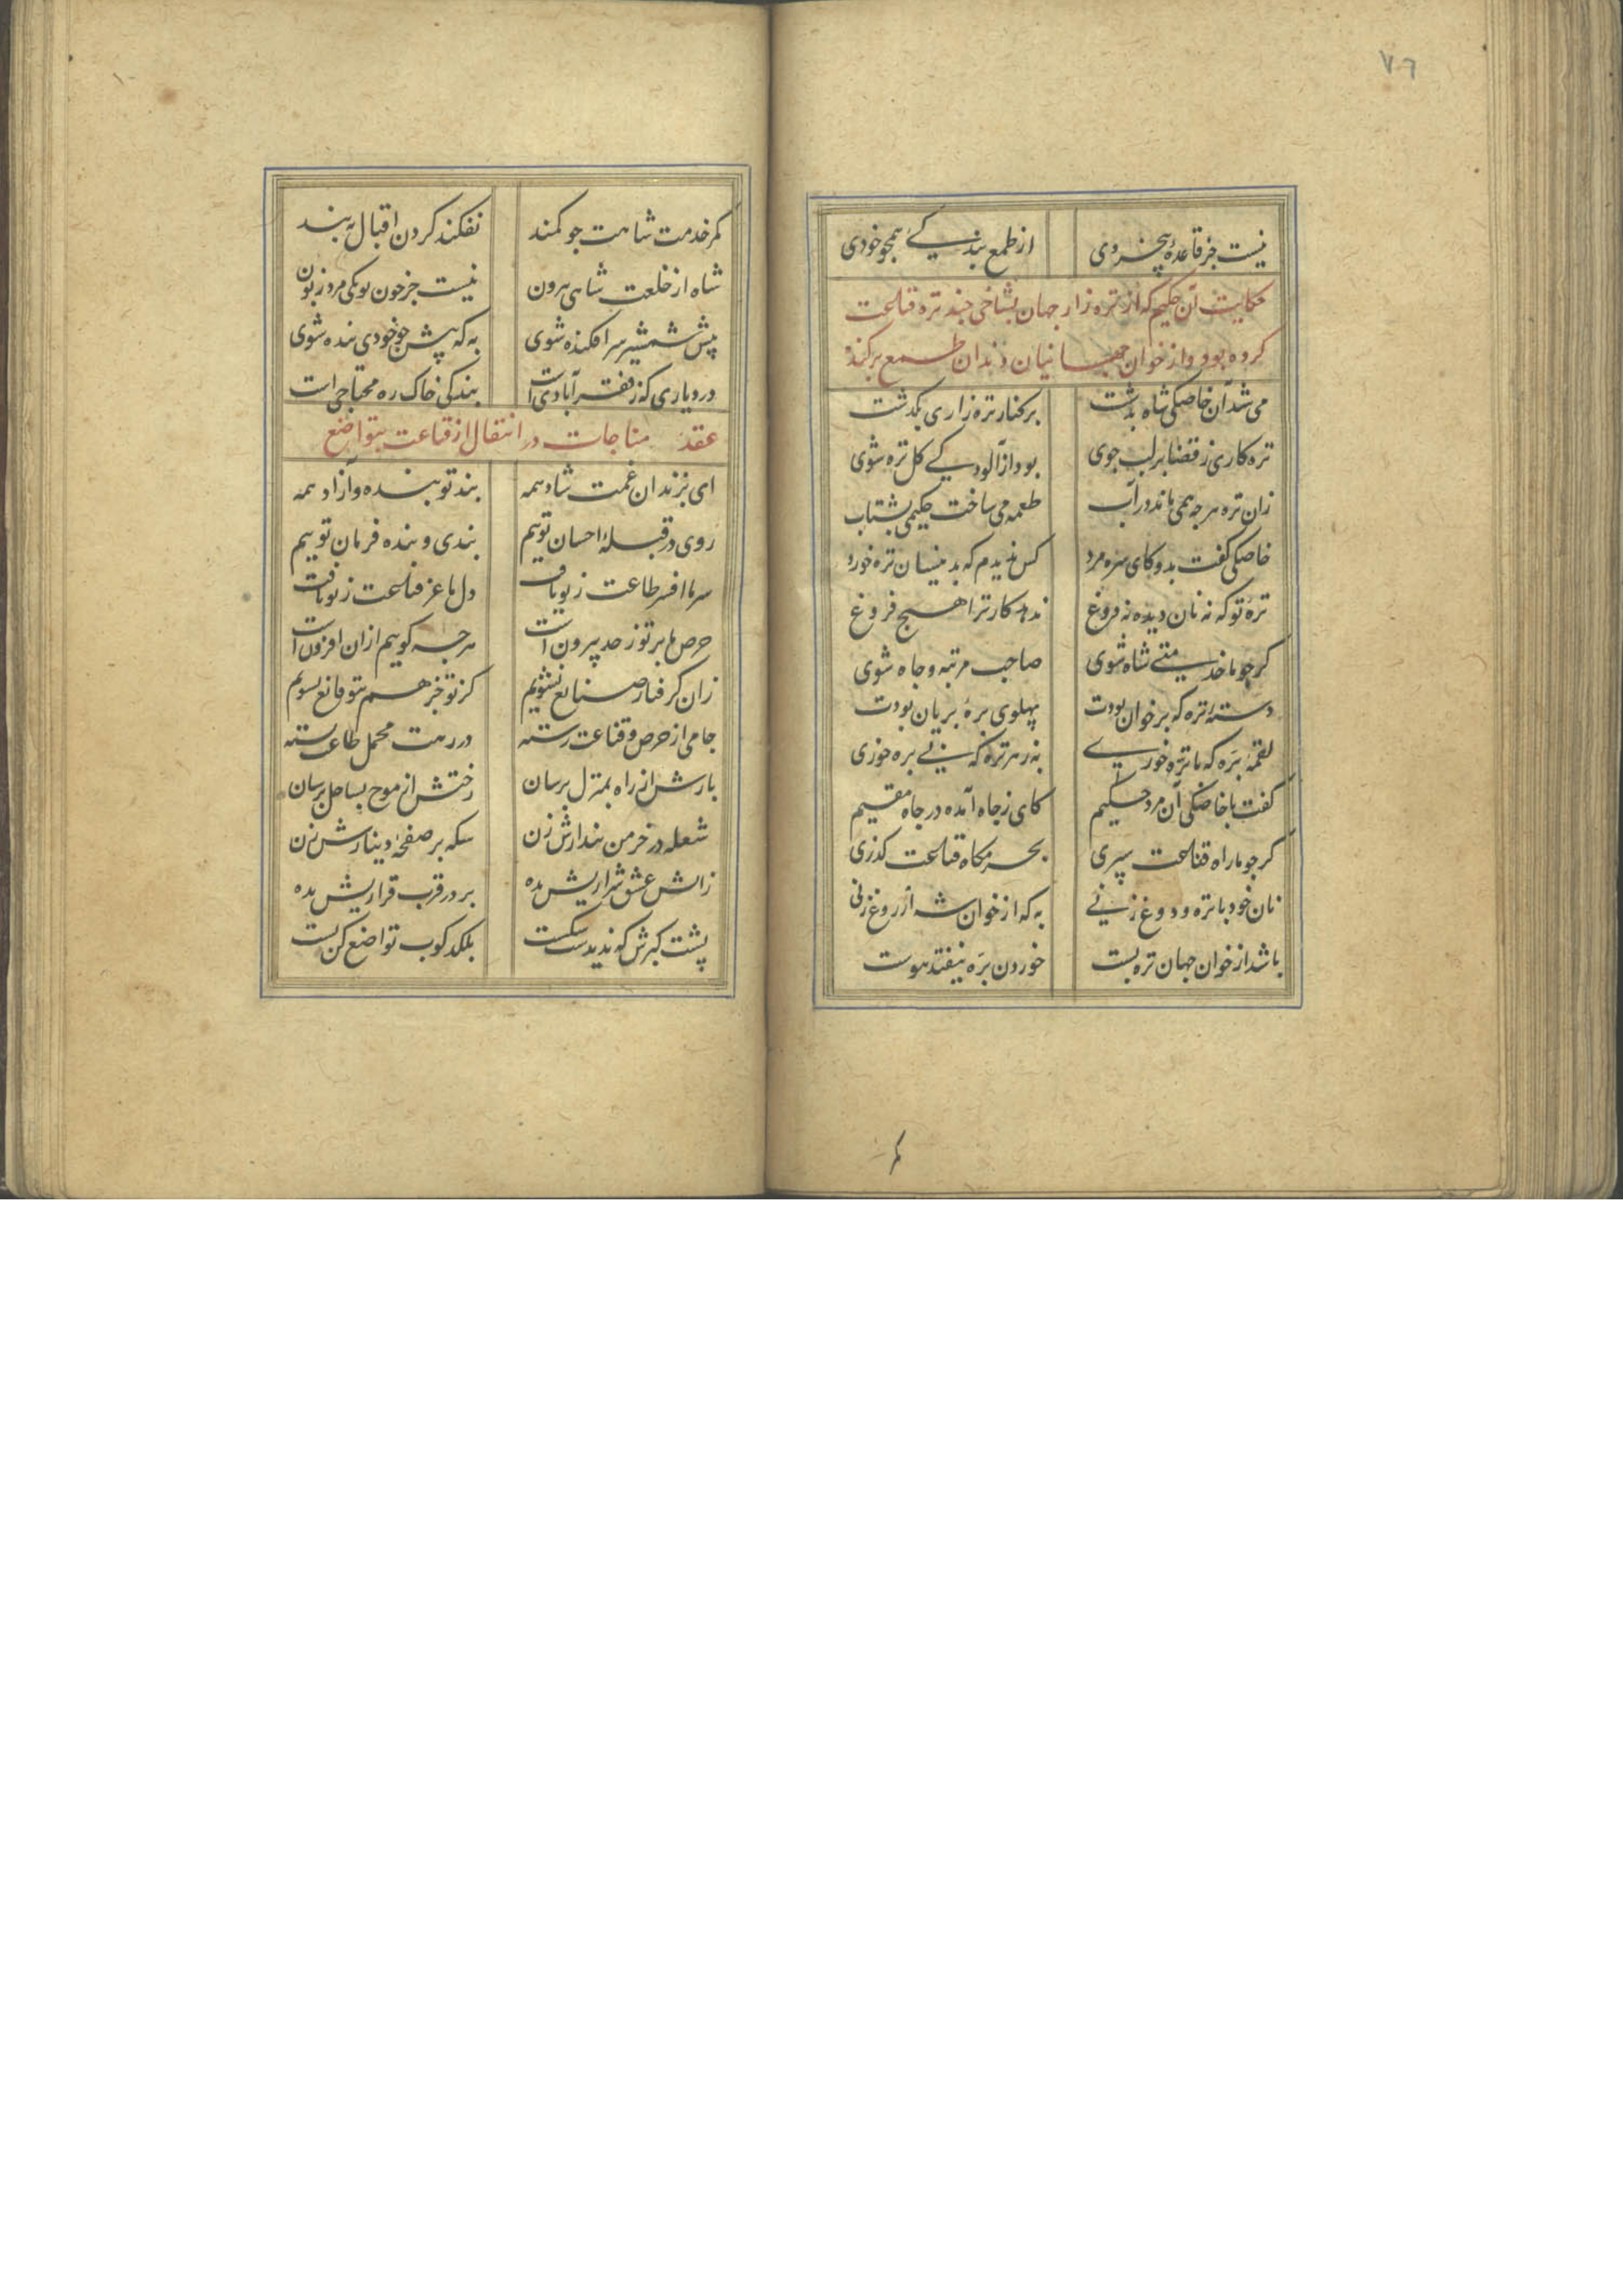 ٧٦
نیست جز قاعدهٔ بیخردی از طمع بندگی همچو خودی
حکایت آن حکیم که از تره زار جهان بشاخی چند تره قناعت
کرده بود و از خوان جهانیان دندان طمع برکند
می شد آن خاصکی شاه بدشت بر کنار تره زاری بگذشت
تره کاری ز قضا بر لب جوی بود از آلودگی گل تره شوی
زان تره هر چه همی ماند در آب طعمه می ساخت حکیمی بشتاب
خاصکی گفت بدو کای سره مرد کس ندیدم که بدینسان تره خورد
ترهٔ تو که نه نان دیده نه دوغ ندهد کار ترا هیچ فروغ
گر چو ما خدمتی شاه شوی صاحب مرتبه و جاه شوی
دستهٔ تره که بر خوان بودت پهلوی برهٔ بریان بودت
لقمهٔ بره که با تره خوری به ز هر تره که بی بره خوری
گفت با خاصکی آن مرد حکیم کای ز جاه آمده در چاه مقیم
گر چو ما راه قناعت سپری بحرمگاه قناعت گذری
نان خود با تره و دوغ زنی به که از خوان شه آروغ زنی
باشد از خوان جهان تره بست خوردن بره نیفتد هوست
کمر خدمت شاهت چو کمند نفکند گردن اقبال به بند
شاه از خلعت شاهی بیرون نیست جز چون تو یکی مرد زبون
پیش شمشیر سر افکنده شوی به که پیش چو خودی بنده شوی
در دیاری که ز فقر آبادی است بندگی خاک ره محتاجی است
عقد مناجات در انتقال از قناعت بتواضع
ای بزندان غمت شاد همه بند تو بنده و آزاد همه
روی در قبلهٔ احسان توییم بندی و بنده فرمان توییم
سر ما افسر طاعت ز تو یافت دل ما عز قناعت ز تو یافت
حرص ما بر تو ز حد بیرون است هر چه گوییم ازان افزون است
زان گرفتار صنایع نشویم کز تو جز هم بتو قانع نشویم
جامی از حرص و قناعت رسته در رهت محمل طاعت بسته
بارش از راه بمنزل برسان رختش از موج بساحل برسان
شعله در خرمن پندارش زن سکه بر صفحهٔ دینارش زن
زاتش عشق شراریش بده بر در قرب قراریش بده
پشت کبرش که ندیدست شکست بلکد کوب تواضع کن پست